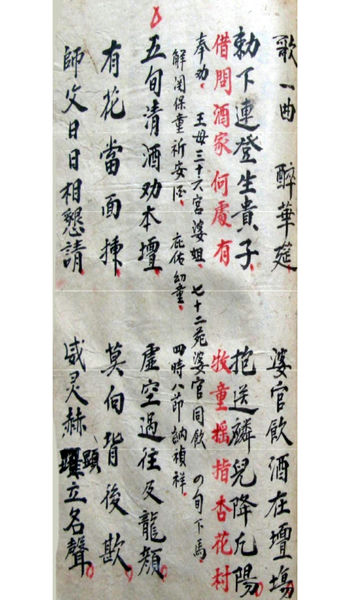 歌一曲 醉華筵 婆官飲酒在壇場
勅下連登生貴子 抱送麟兒降凡陽
借問酒家何處有 牧童摇指杏花村
奉劝 王母三十六宮婆姐 七十二苑婆官同飲 の旬下馬
解関保童祈安 庇佑幼童 四時八節納禎祥
五旬清酒劝本壇 虚空過往及龍顏
有花當面揀 莫向背後歎
師父日日相懇請 威灵赫顕立名聲